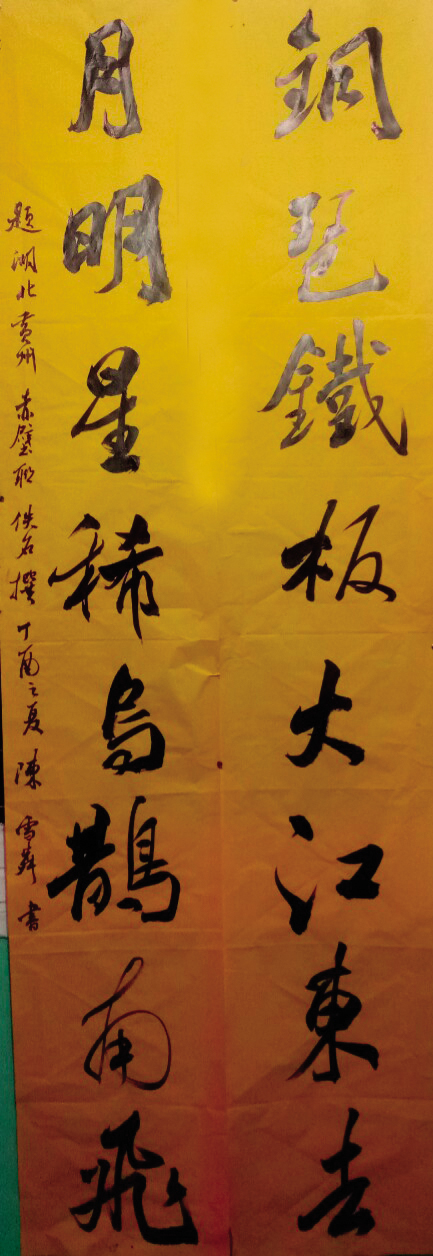 銅琶鐵板大江東去
月明星稀烏鵲南飛
題湖北黄州赤壁联佚名撰丁酉之夏陳雪舞書